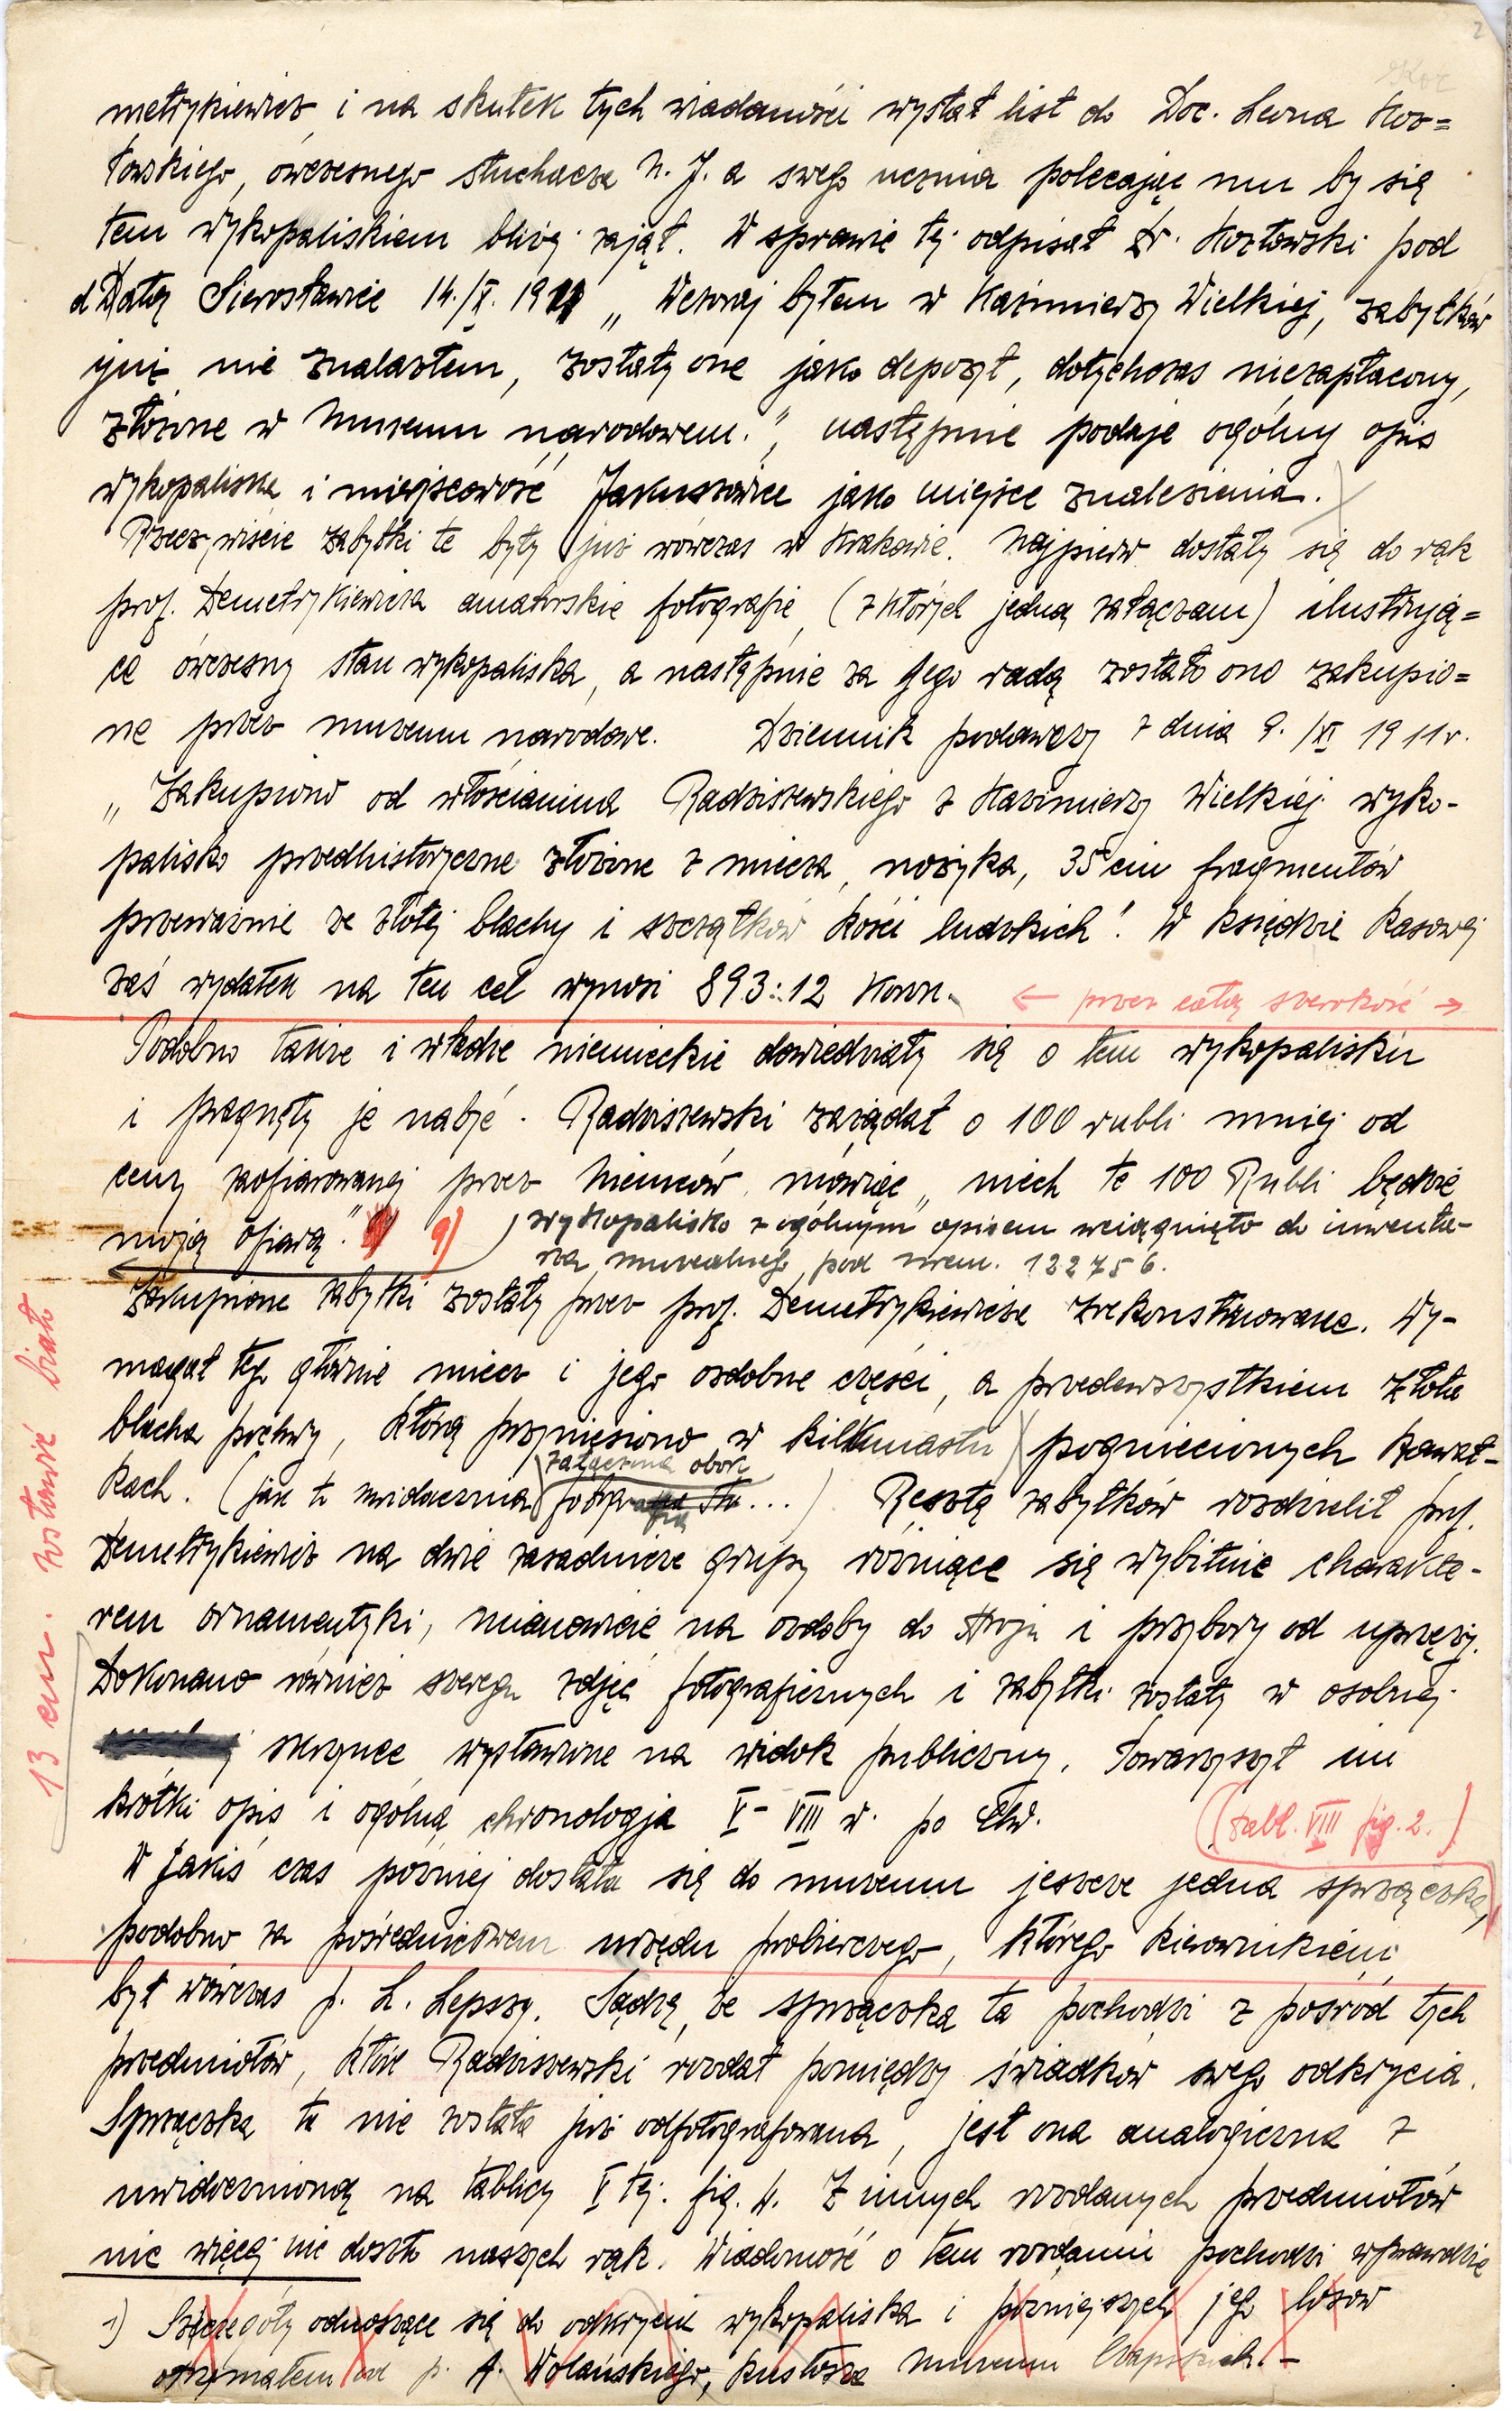 2
metrykiewicz i na skutek tych wiadomości wysłał list do Doc. Leona Koz=
łowskiego, ówczesnego słuchacza U. J. a swego ucznia polecając mu by się
tem wykopaliskiem bliżej zajął. W sprawie tej odpisał Dr. Kozłowski pod
Datą Sierosławice 14./X. 1911 „ Wczoraj byłem w Kazimierzy Wielkiej, zabytków
już nie znalazłem, zostały one jako depozyt, dotychczas niezapłacony,
złożone w Muzeum narodowem.", następnie podaje ogólny opis
wykopaliska i miejscowość Jakuszowice jako miejsce znalezienia.
Rzeczywiście zabytki te były już wówczas w Krakowie. Najpierw dostały się do rąk
prof. Demetrykiewicza amatorskie fotografie, (z których jedną załączam) ilustrują=
ce ówczesny stan wykopaliska, a następnie za Jego radą zostało ono zakupio=
ne przez muzeum narodowe. Dziennik podawczy z dnia 9. /XI 1911 r.
„ Zakupiono od włościanina Radziszewskiego z Kazimierzy Wielkiej wyko-
palisko przedhistoryczne złożone z miecza, nożyka, 35ciu fragmentów
przeważnie ze złotej blachy i szczątków kości ludzkich". W księdze kasowej
zaś wydatek na ten cel wynosi 893:12 Koron.
← przez całą szerokość →
Podobno także i władze niemieckie dowiedziały się o tem wykopalisku
i pragnęły je nabyć. Radziszewski zażądał o 100 rubli mniej od
ceny zaofiarowanej przez Niemców, mówiąc „ niech te 100 Rubli będzie
moją ofiarą." 9)
wykopalisko z ogólnym opisem wciągnięto do inwenta-
rza muzealnego pod nrem. 122756.
Zakupione zabytki zostały przez prof. Demetrykiewicza zrekonstruowane. Wy-
magał tego głównie miecz i jego ozdobne części, a przedewszystkiem złota
blacha pochwy, którą przyniesiono w kilkunastu pogniecionych kawał-
kach. (jak to uwidacznia załączona obok fotografia ...) Resztę zabytków rozdzielił prof.
Demetrykiewicz na dwie zasadnicze grupy różniące się wybitnie charakte-
rem ornamentyki, mianowicie na ozdoby do stroju i przybory od uprzęży.
Dokonano również szeregu zdjęć fotograficznych i zabytki zostały w osobnej
skrzynce wystawione na widok publiczny. Towarzyszył im
krótki opis i ogólna chronologja V - VIII w. po Chr.
(tabl. VIII fig. 2.)
W jakiś czas później dostała się do muzeum jeszcze jedna sprzączka,
podobno za pośrednictwem urzędu probierczego, którego kierownikiem
był wówczas p. L. Lepszy. Sądzę, że sprzączka ta pochodzi z pośród tych
przedmiotów, które Radziszewski rozdał pomiędzy świadków swego odkrycia.
Sprzączka ta nie została już odfotografowana, jest ona analogiczna z
uwidocznioną na tablicy V tej. fig. 4. Z innych rozdanych przedmiotów
nic więcej nie doszło naszych rąk. Wiadomość o tem rozdaniu pochodzi wprawdzie
1) Szczegóły odnoszące się do odkrycia wykopaliska i późniejszych jego losów
otrzymałem od p. A. Wolańskiego, kustosza Muzeum Czapskich. -
13 cm. zostawić biało